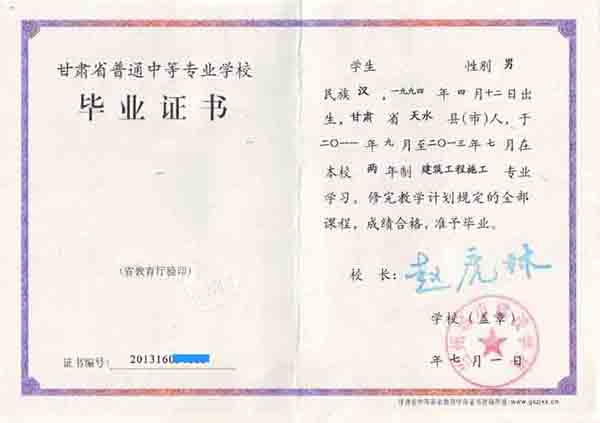 甘肃省普通中等专业学校
毕业证书
(省教育厅验印)
证书编号: 201316
学生 性别 男
民族 汉 , 一九九四 年 四 月 十二 日出
生, 甘肃 省 天水 县(市)人, 于
二〇一一 年 九 月至 二〇一三 年 七 月在
本校 两 年制 建筑工程施工 专业
学习, 修完教学计划规定的全部
课程, 成绩合格, 准予毕业。
校 长:
学校(盖章)
年 七 月 一 日
www.gszjxx.cn